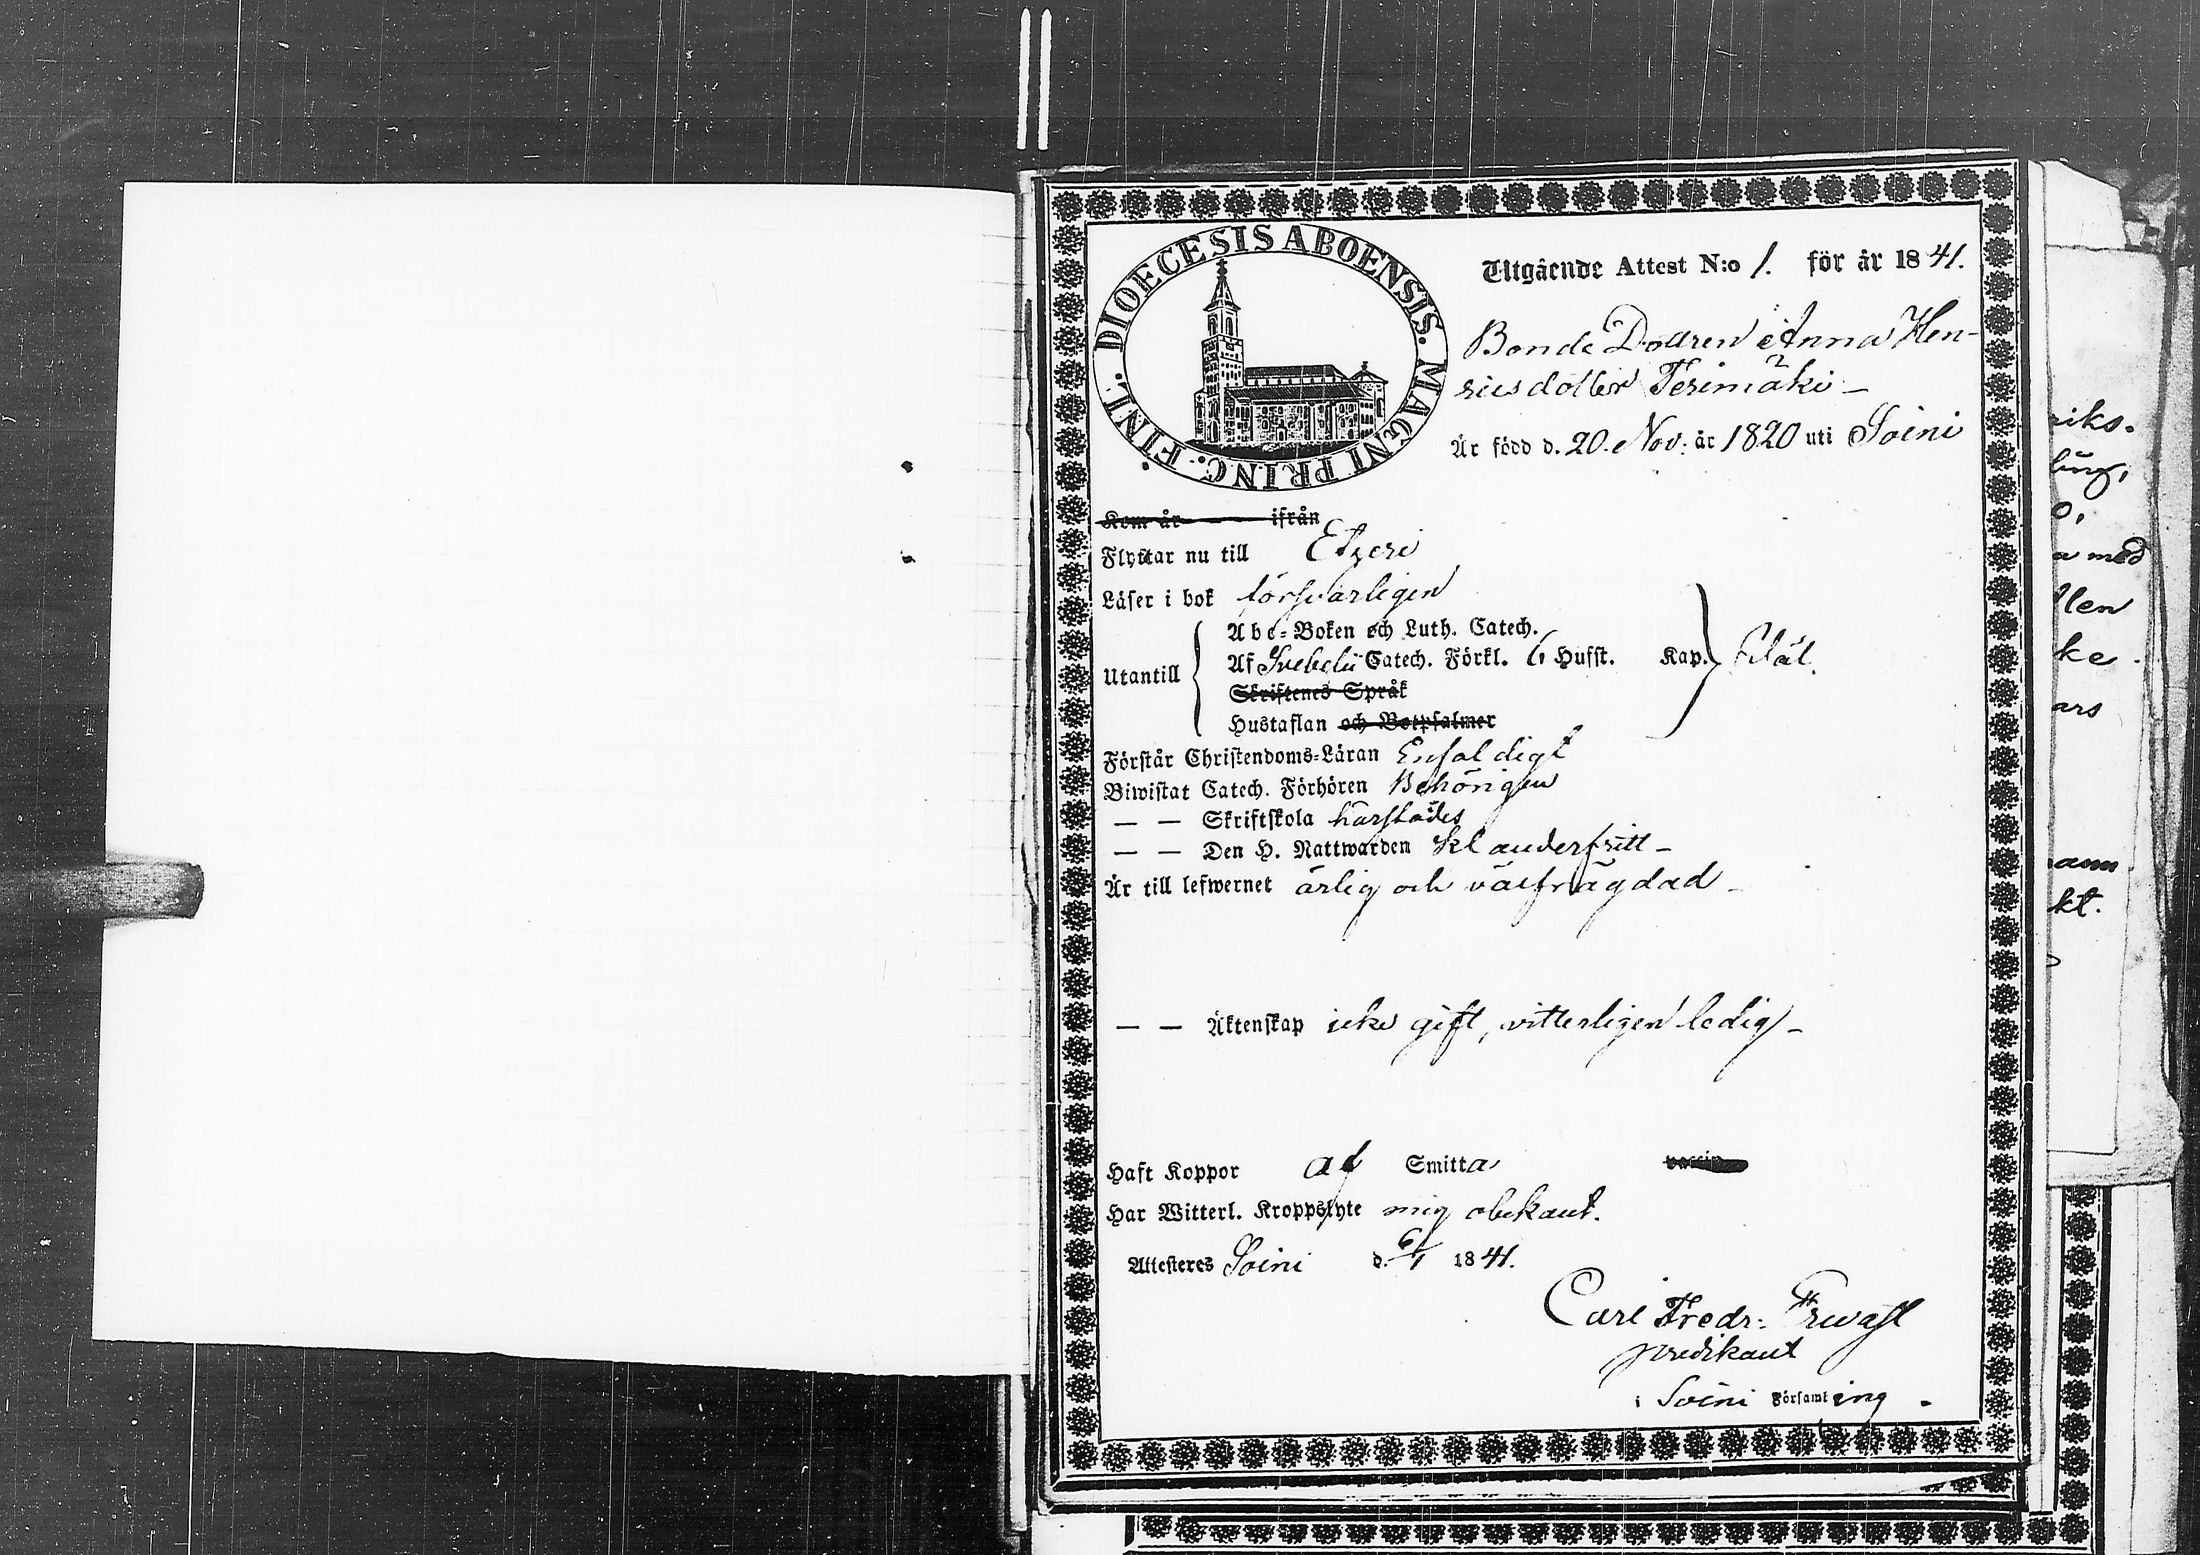 DIOECESIS ABOENSIS. MAGNI PRINC. FINL.
Utgående Attest N:o 1. för år 1841.
Bonde Dottren Anna Hen-
ricsdotter Terimäki -
Är född d. 20. Nov: år 1820 uti Soini
Kom år ifrån
Flyttar nu till Etzeri
Läser i bok försvarligen
Utantill
Abc-Boken och Luth. Catech.
Af Svebelii Catech. Förkl. 6 Hufst. Kap.
Skriftenes Språk
Hustaflan och Botpsalmer
Förstår Christendoms-Läran Enfaldigt
Biwistat Catech. Förhören Behörigen
— — Skriftskola härstädes
— — Den H. Nattwarden klanderfritt -
Är till lefwernet ärlig och välfrägdad -
— — Äktenskap icke gift, vitterligen ledig -
Haft Koppor af Smitta vaccin
Har Witterl. Kroppslyte mig obekant.
Attesteres Soini d. 6/1 1841.
Carl Fredr:
predikant
i Soini Församling.
riks.
a med
llen
ke.
ars
kt.